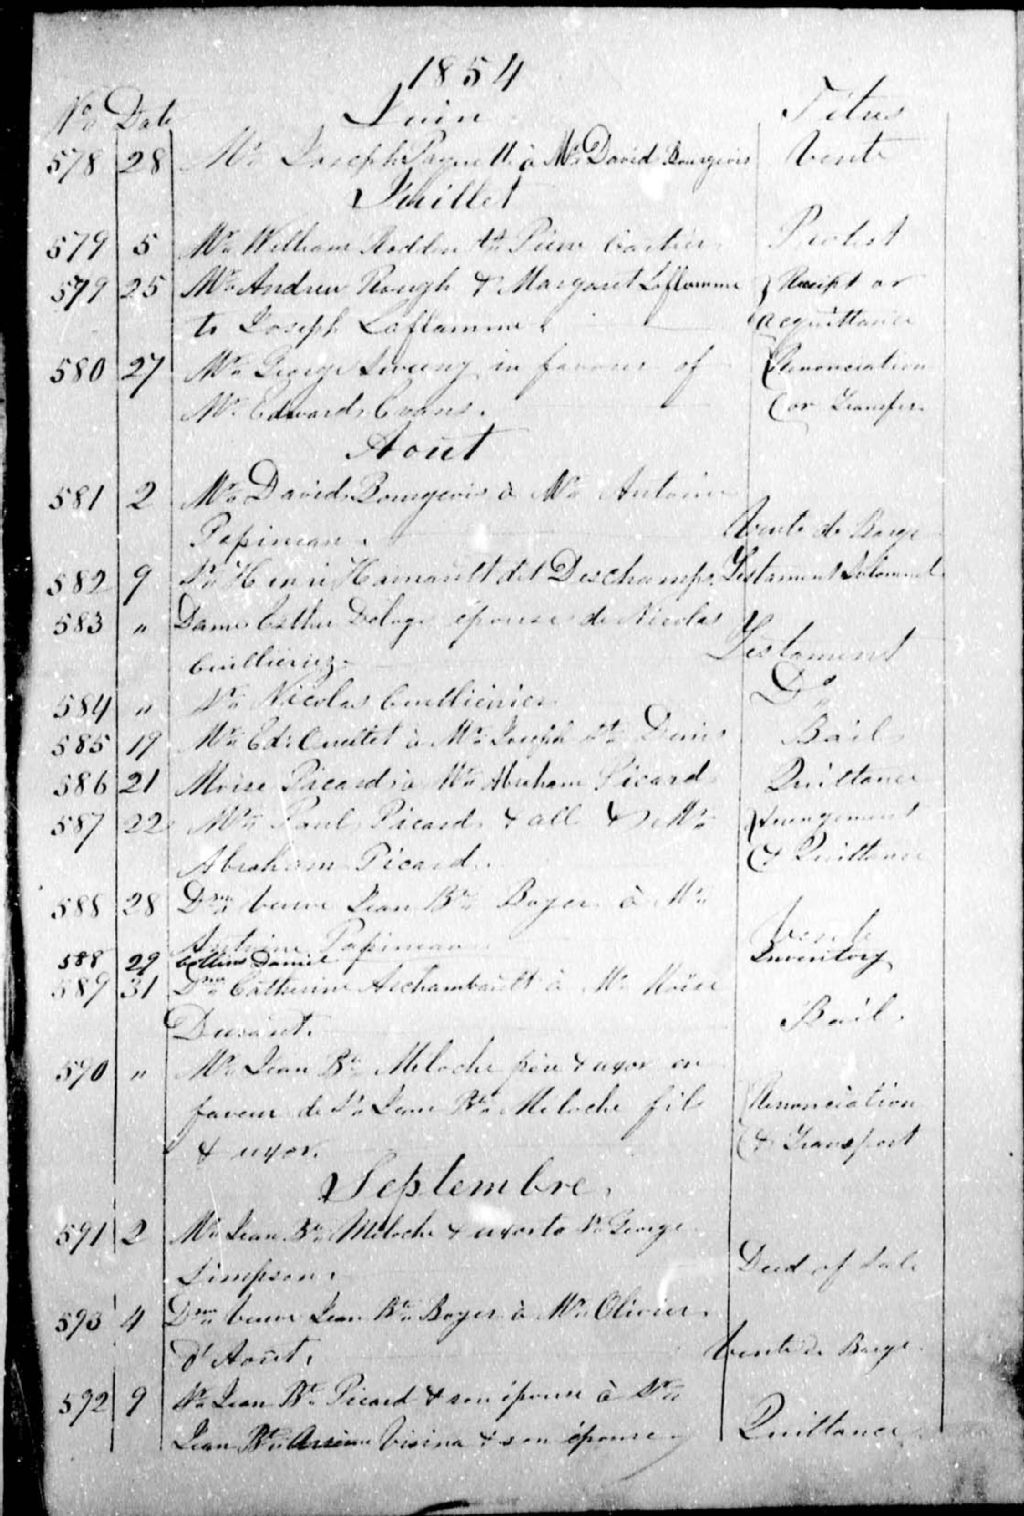 1854
No Date Juin Titres
578 28 Mr. Joseph Paquette à Mr. David Bourgeois Vente
Juillet
579 5 Mr. William to Pierre Protest
579 25 Mr. Andrew Rough & Margaret Laflamme Receipt or
to Joseph Laflamme. acquittance
580 27 Mr. George in favour of Renonciation
Mr. Edward Evans. or Transfer
Août
581 2 Mr. David Bourgeois à Mr. Antoine
Papineau. Vente de Barge
582 9 Sr. Henri Hainault dit Deschamps Testament
583 " Dame Esther épouse de Nicolas
Testament
584 " Sr. Nicolas Do
585 19 Mr. Ed. Ouellet à Mr. Joseph St. Denis Bail
586 21 Moise Picard à Mr. Abraham Picard Quittance
587 22 Mr. Paul Picard & all & Mr. Arrangement
Abraham Picard. & Quittance
588 28 Dme. veuve Jean Bte. Boyer à Mr.
Antoine Papineau Vente
588 29 Collins Daniel Inventory
589 31 Dme. Catherine Archambault à Mr. Moïse
Bail.
590 " Mr. Jean Bte. Meloche père & uxor en
faveur de Sr. Jean Bte. Meloche fils Renonciation
& uxor. & Transport
Septembre.
591 2 Mr. Jean Bte. Meloche & uxor to Sr. George
Simpson. Deed of Sale
593 4 Dme. veuve Jean Bte. Boyer à Mr. Olivier
d'Août. Vente de Barge
592 9 Sr. Jean Bte. Picard & son épouse à Sr.
Jean Bte. & son épouse Quittance